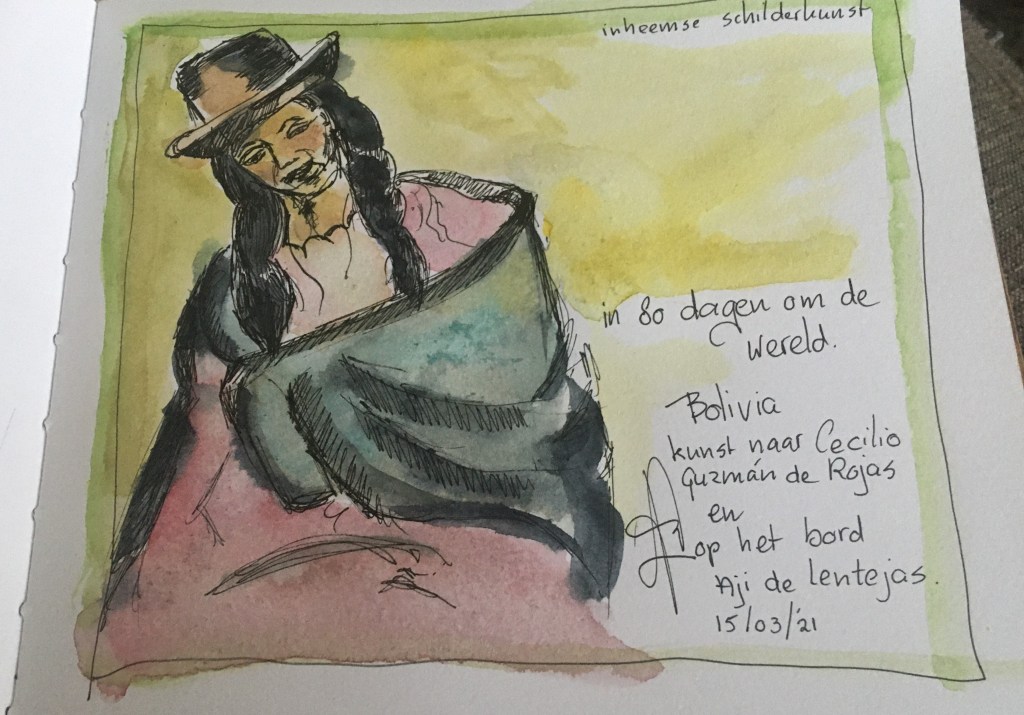 inheemse schilderkunst
in 80 dagen om de
wereld.
Bolivia
kunst naar Cecilio
Guzmán de Rojas
en
op het bord
Aji de lentejas.
15/03/'21